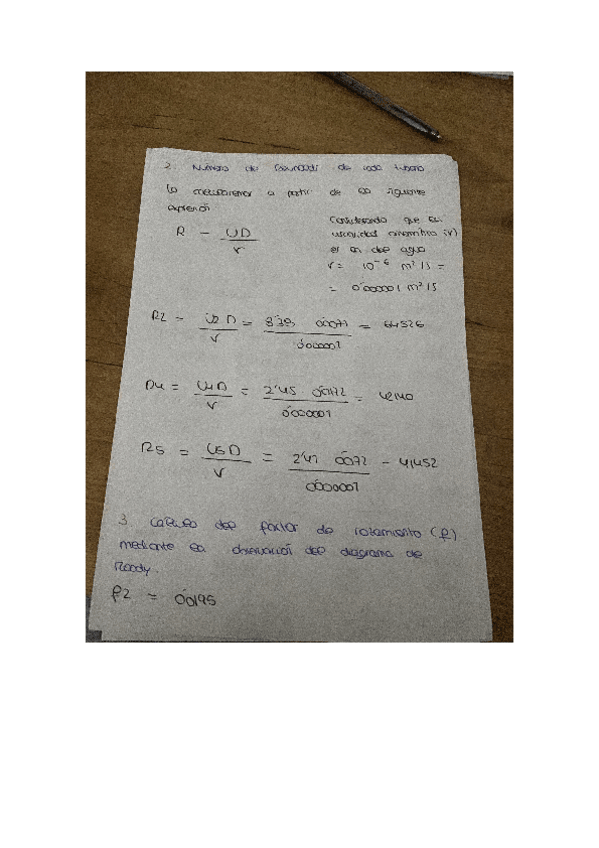 2. Número de Reynolds de cada tubería
Lo calcularemos a partir de la siguiente
expresión
R = UD / V
Considerando que la
viscosidad cinemática (v)
es en de agua
V = 10⁻⁶ m²/s =
= 0'000001 m²/s
R2 = U2 D / V = 0'0072 / 0'000001 = 64526
R4 = U4 D / V = 2'45 0'0172 / 0'000001 = 42140
R5 = U5 D / V = 2'41 0'0172 / 0'000001 = 41452
3. Cálculo del factor de rozamiento (f)
mediante la observación del diagrama de
Moody.
f2 = 0'0195